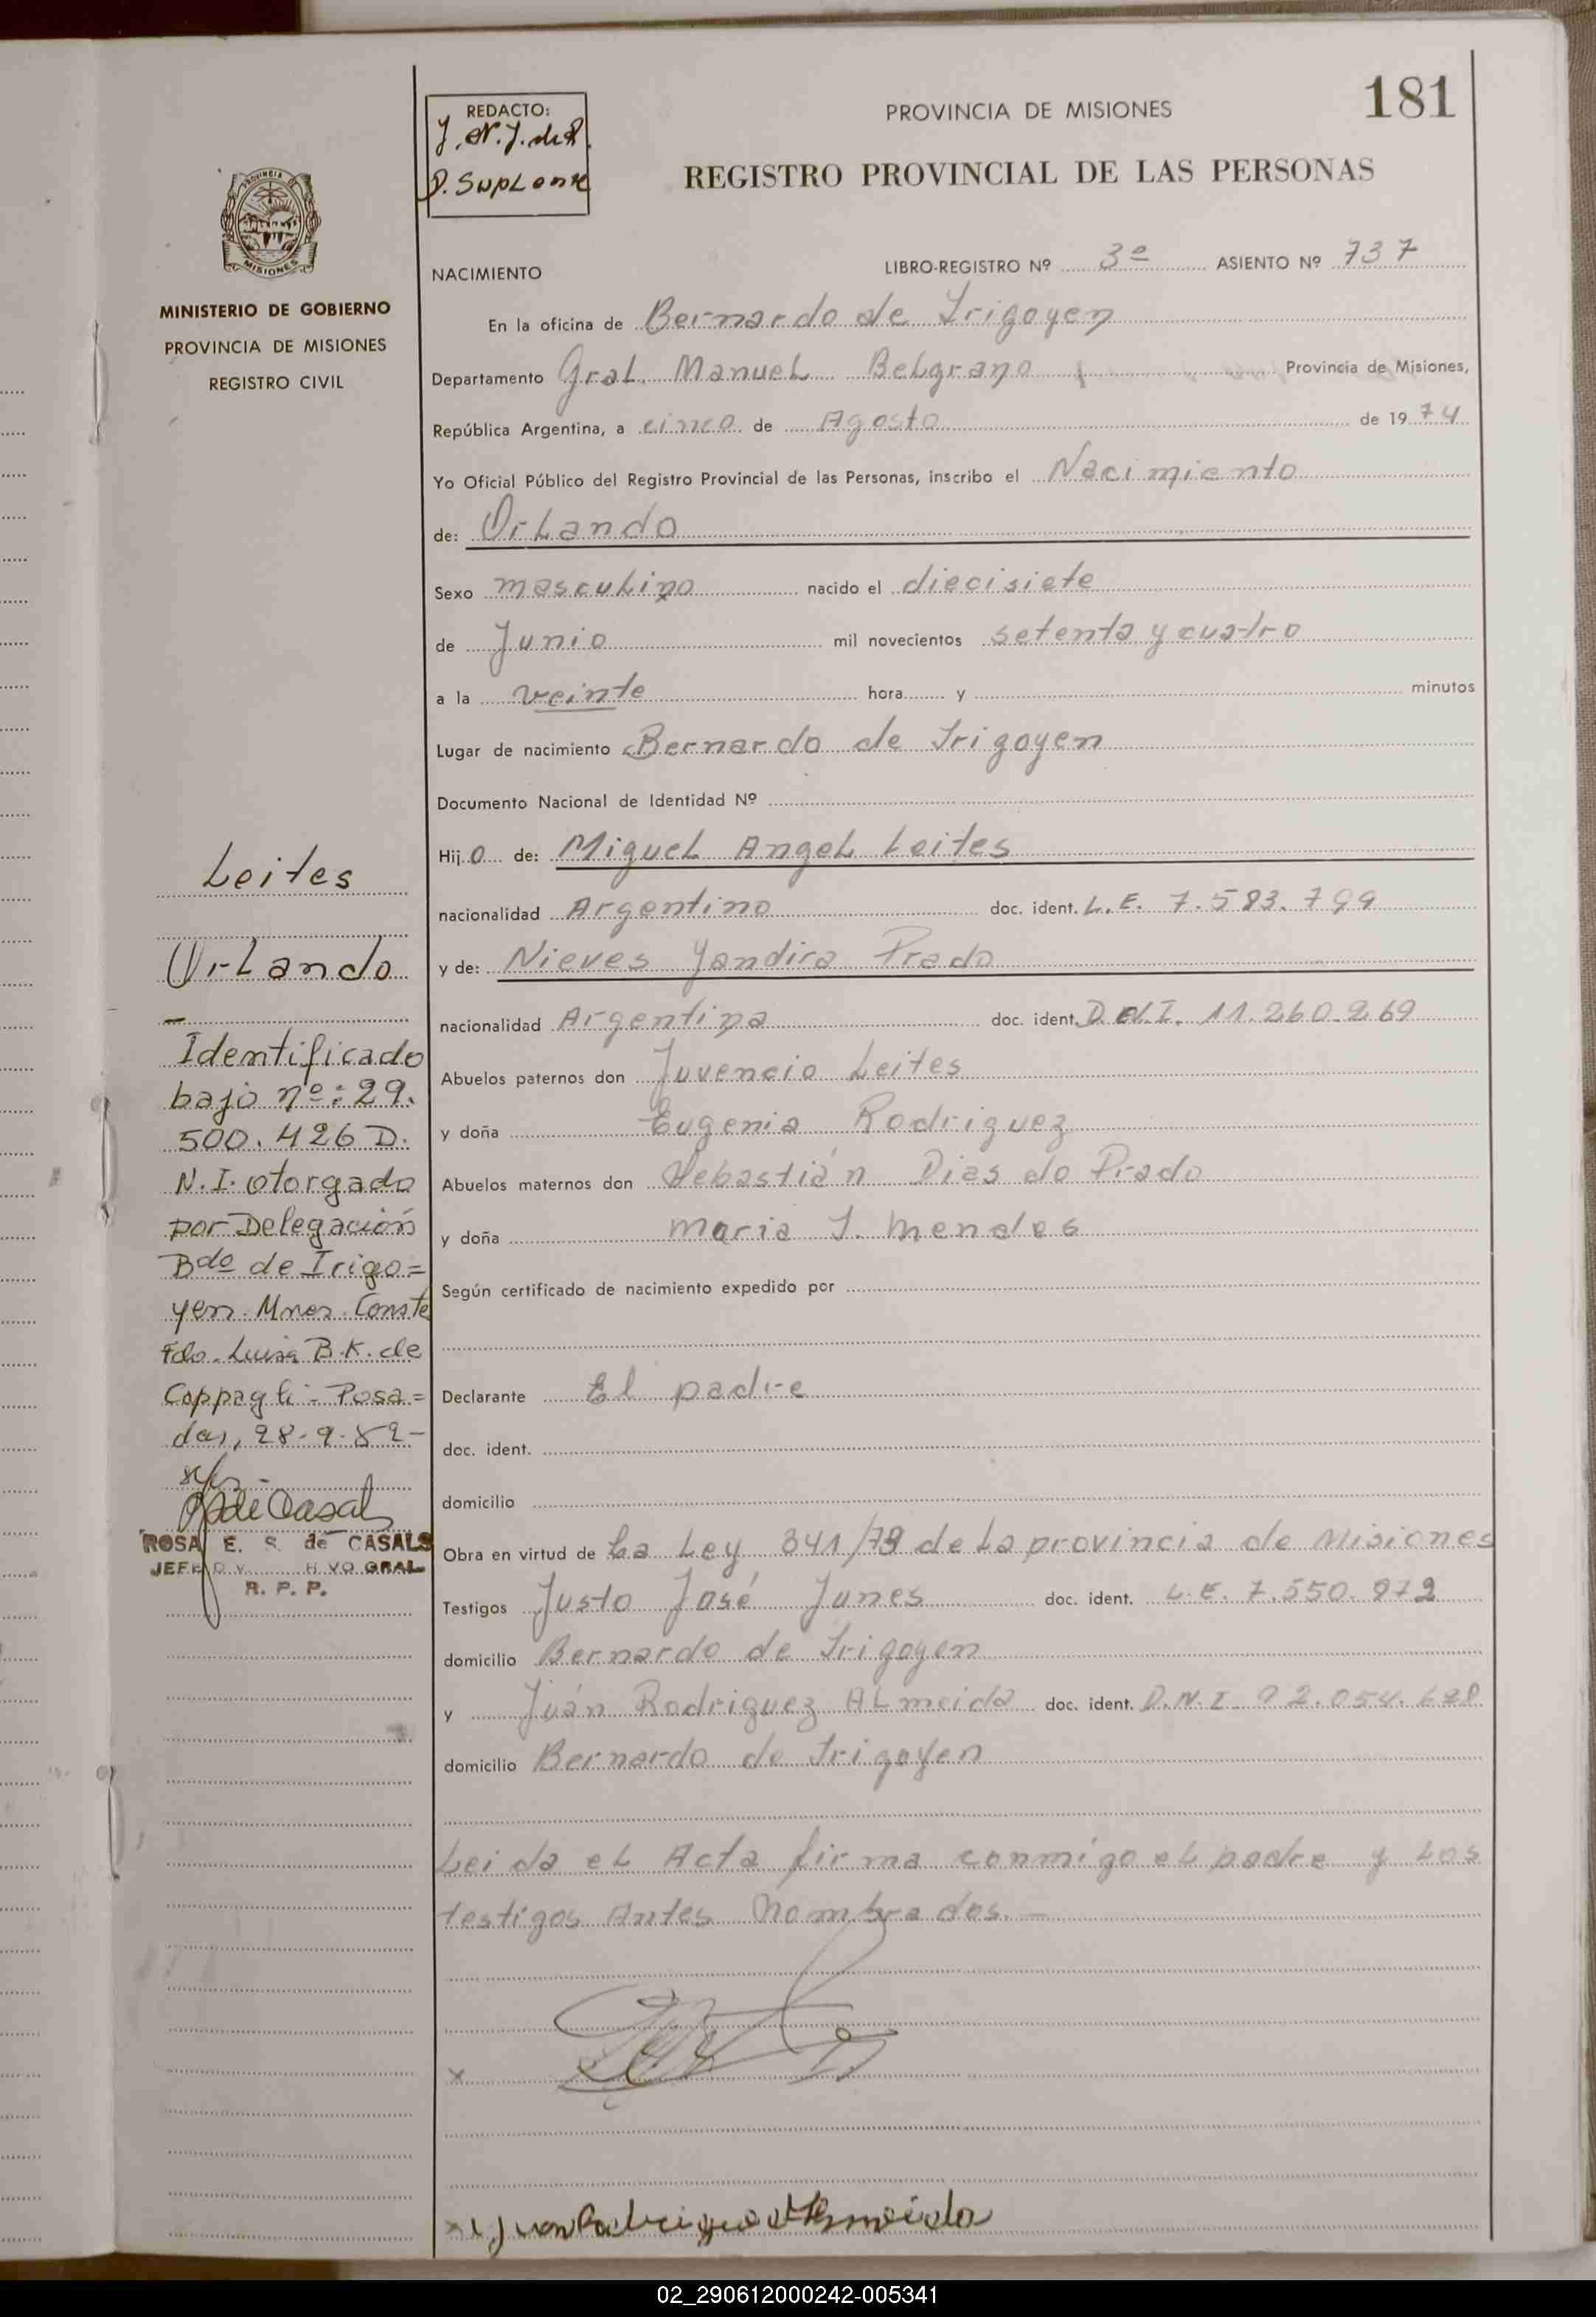 181
REDACTO:
J. N. J. de R.
D. Suplente
PROVINCIA DE MISIONES
REGISTRO PROVINCIAL DE LAS PERSONAS
PROVINCIA
MISIONES
MINISTERIO DE GOBIERNO
PROVINCIA DE MISIONES
REGISTRO CIVIL
NACIMIENTO
LIBRO-REGISTRO Nº 3º ASIENTO Nº 737
En la oficina de Bernardo de Irigoyen
Departamento Gral. Manuel Belgrano Provincia de Misiones,
República Argentina, a cinco de Agosto de 1974
Yo Oficial Público del Registro Provincial de las Personas, inscribo el Nacimiento
de: Orlando
Sexo masculino nacido el diecisiete
de Junio mil novecientos setenta y cuatro
a la veinte hora y minutos
Lugar de nacimiento Bernardo de Irigoyen
Documento Nacional de Identidad Nº
Hijo de: Miguel Angel Leites
nacionalidad Argentino doc. ident. L.E. 7.583.799
y de: Nieves Yandira Prado
nacionalidad Argentina doc. ident. D.N.I. 11.260.269
Abuelos paternos don Juvencio Leites
y doña Eugenia Rodriguez
Abuelos maternos don Sebastián Dias do Prado
y doña Maria J. Mendes
Según certificado de nacimiento expedido por
Declarante El padre
doc. ident.
domicilio
Obra en virtud de La Ley 341/79 de La provincia de Misiones
Testigos Justo José Junes doc. ident. L.E. 7.550.972
domicilio Bernardo de Irigoyen
y Juán Rodriguez Almeida doc. ident. D.N.I. 92.054.
domicilio Bernardo de Irigoyen
Leida el Acta firma conmigo el padre y Los
testigos Antes Nombrados.—
x
x Juan Rodrigues Almeida
Leites
Orlando
Identificado
bajo nº: 29.
500.426 D.
N.I. otorgado
por Delegación
Bdo de Irigo=
yen. Mnes. Conste
Fdo. Luisa B.K. de
Coppagli - Posa=
das, 28-9-82-
R de Casals
ROSA E. S. de CASALS
JEFE DIV. VO GRAL
R. P. P.
02_290612000242-005341